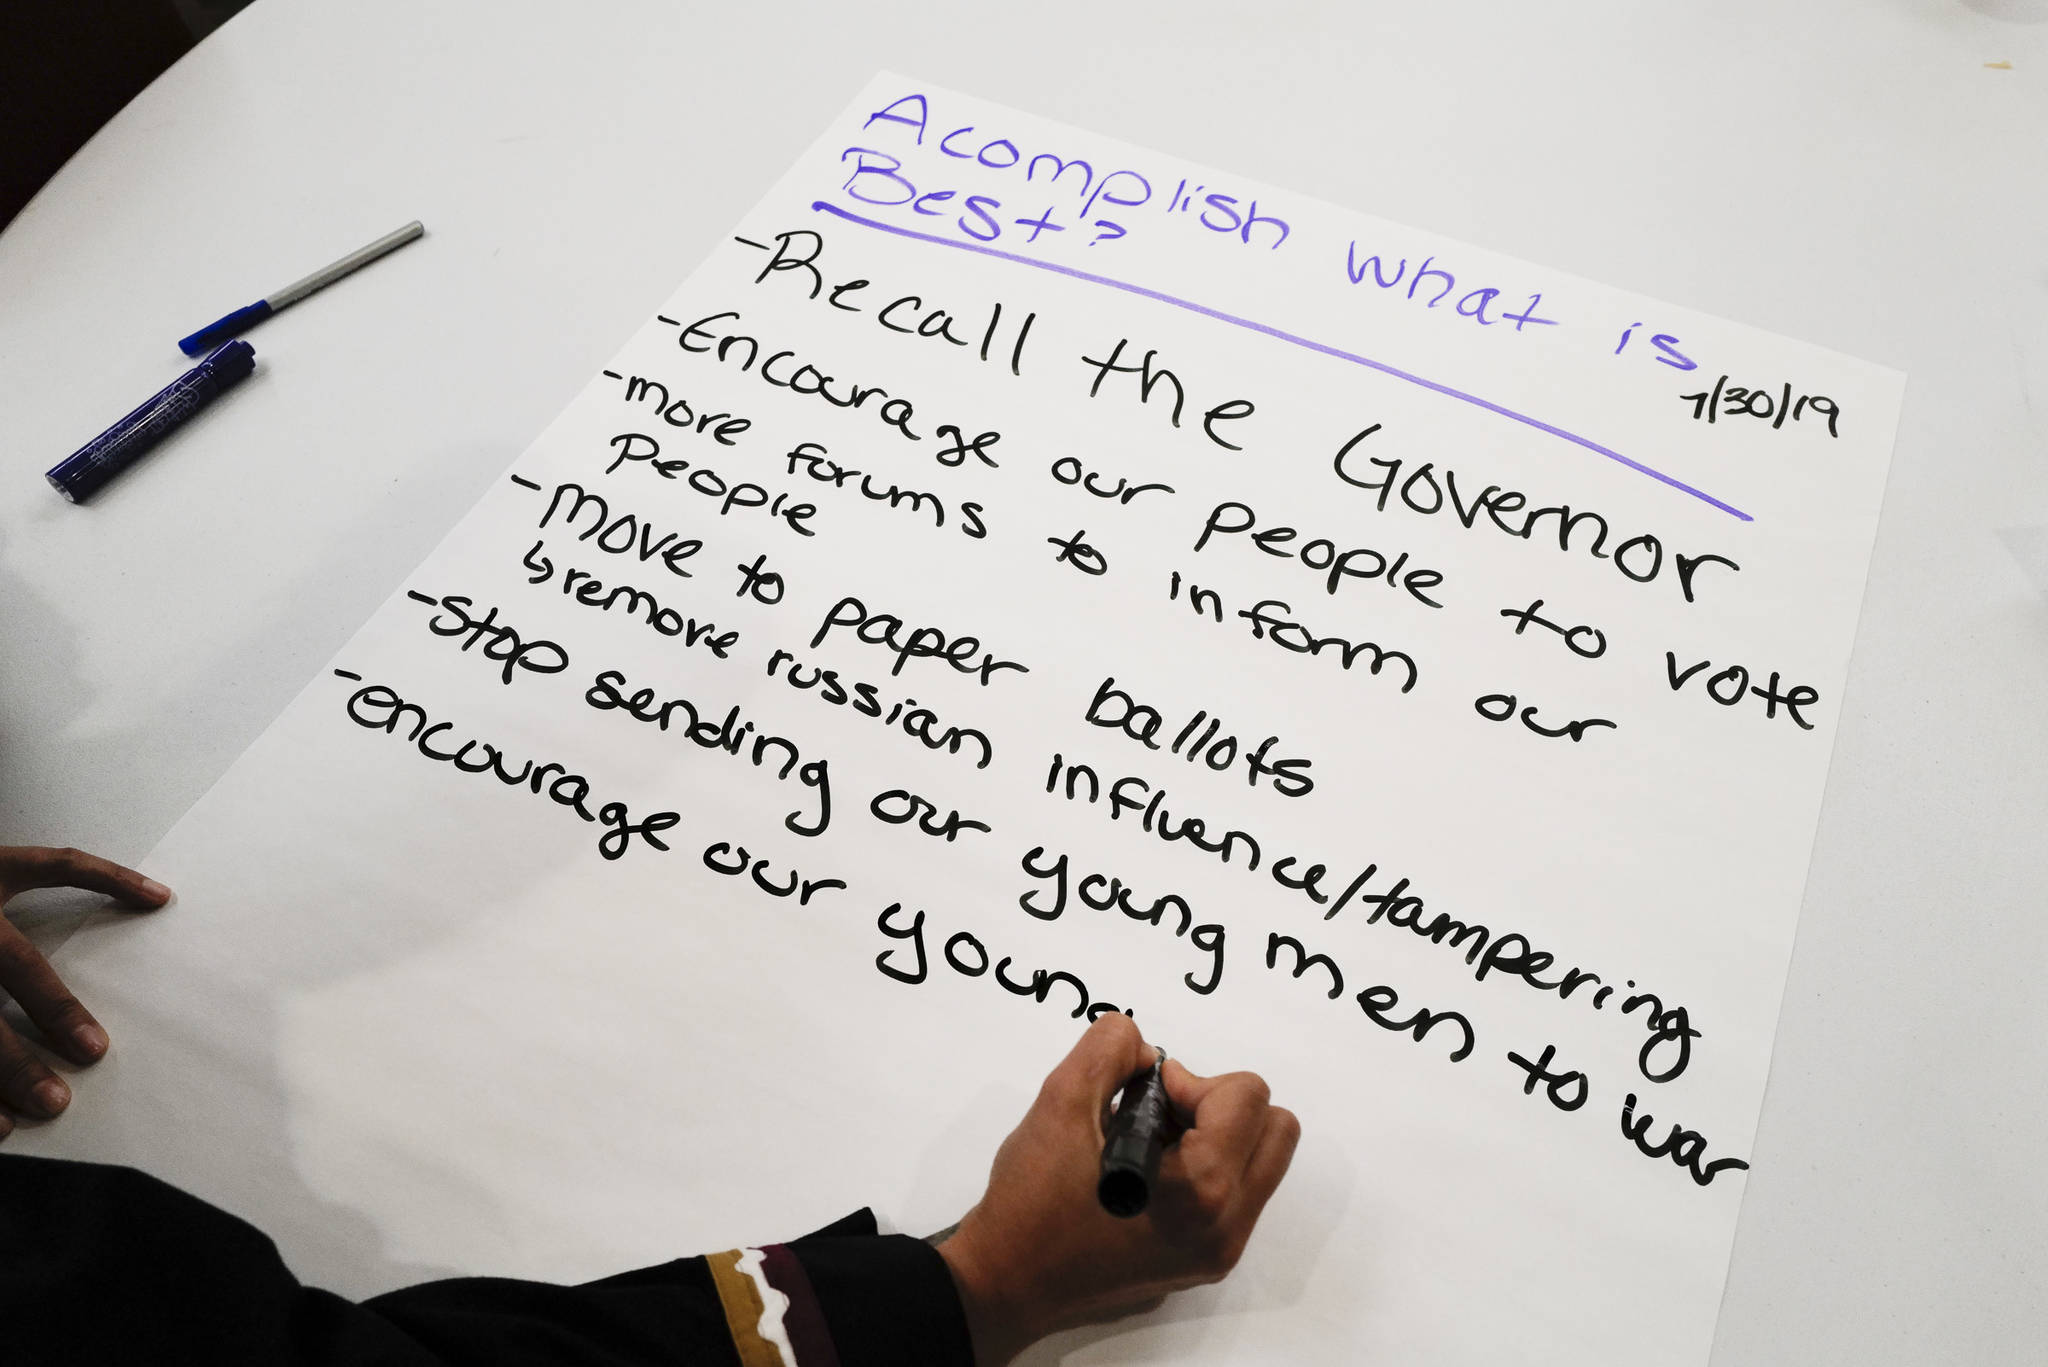 Acomplish what is
Best?
7/30/19
-Recall the Governor
-Encourage our people to vote
-more forums to inform our
people
-Move to paper ballots
↳ remove russian influence/tampering
-Stop sending our young men to war
-encourage our young